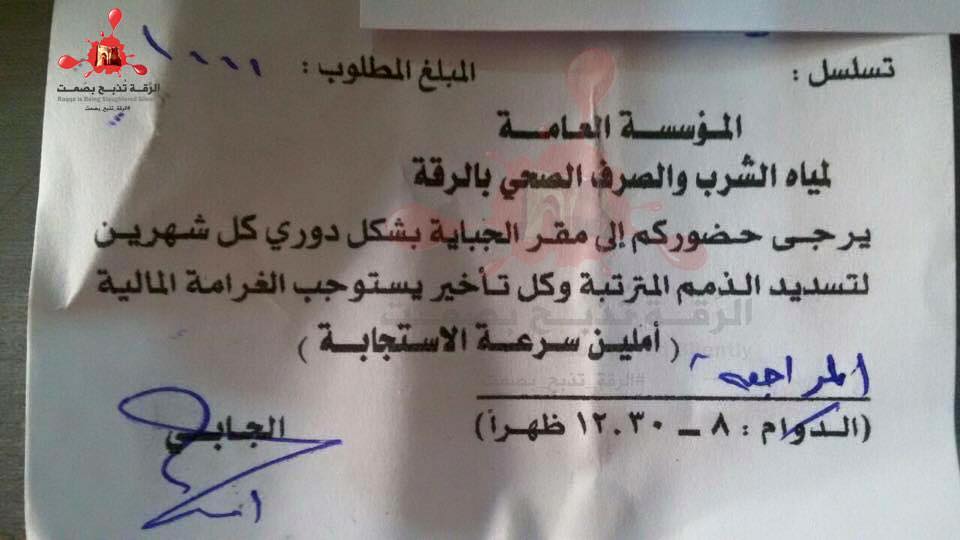 الرقة تذبح بصمت
Raqqa is Being Slaughtered Silently
#الرقة_تذبح_بصمت
تسلسل :
المبلغ المطلوب :
المؤسسة العامة
لمياه الشرب والصرف الصحي بالرقة
يرجى حضوركم إلى مقر الجباية بشكل دوري كل شهرين
لتسديد الذمم المترتبة وكل تأخير يستوجب الغرامة المالية
( أملين سرعة الاستجابة )
المراجعة
(الدوام : ٨ ــ ١٢.٣٠ ظهراً)
الجابي
الرقة تذبح بصمت
#الرقة_تذبح_بصمت